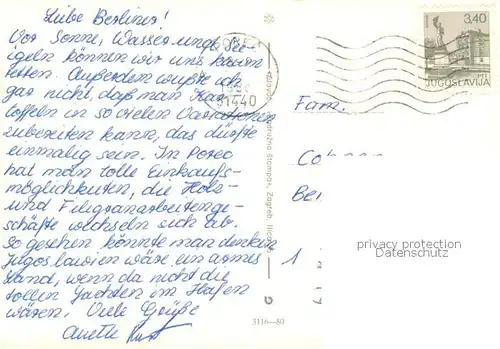 Liebe Berliner!
Vor Sonne, Wasser und See-
igeln können wir uns kaum
retten. Außerdem wußte ich
gar nicht, daß man Kar-
toffeln in so vielen Variationen
zubereiten kann, das dürfte
einmalig sein. In Porec
hat man tolle Einkaufs-
möglichkeiten, die Holz-
und Filigranarbeitenge-
schäfte wechseln sich ab.
So gesehen könnte man denken
Jugoslawien wäre ein armes
Land, wenn da nicht die
tollen Jachten im Hafen
wären. Viele Grüße
Anette
51440
Zagreb
3116—80
3,40
JUGOSLAVIJA
Fam.
Co
Ber
1
privacy protection
Datenschutz